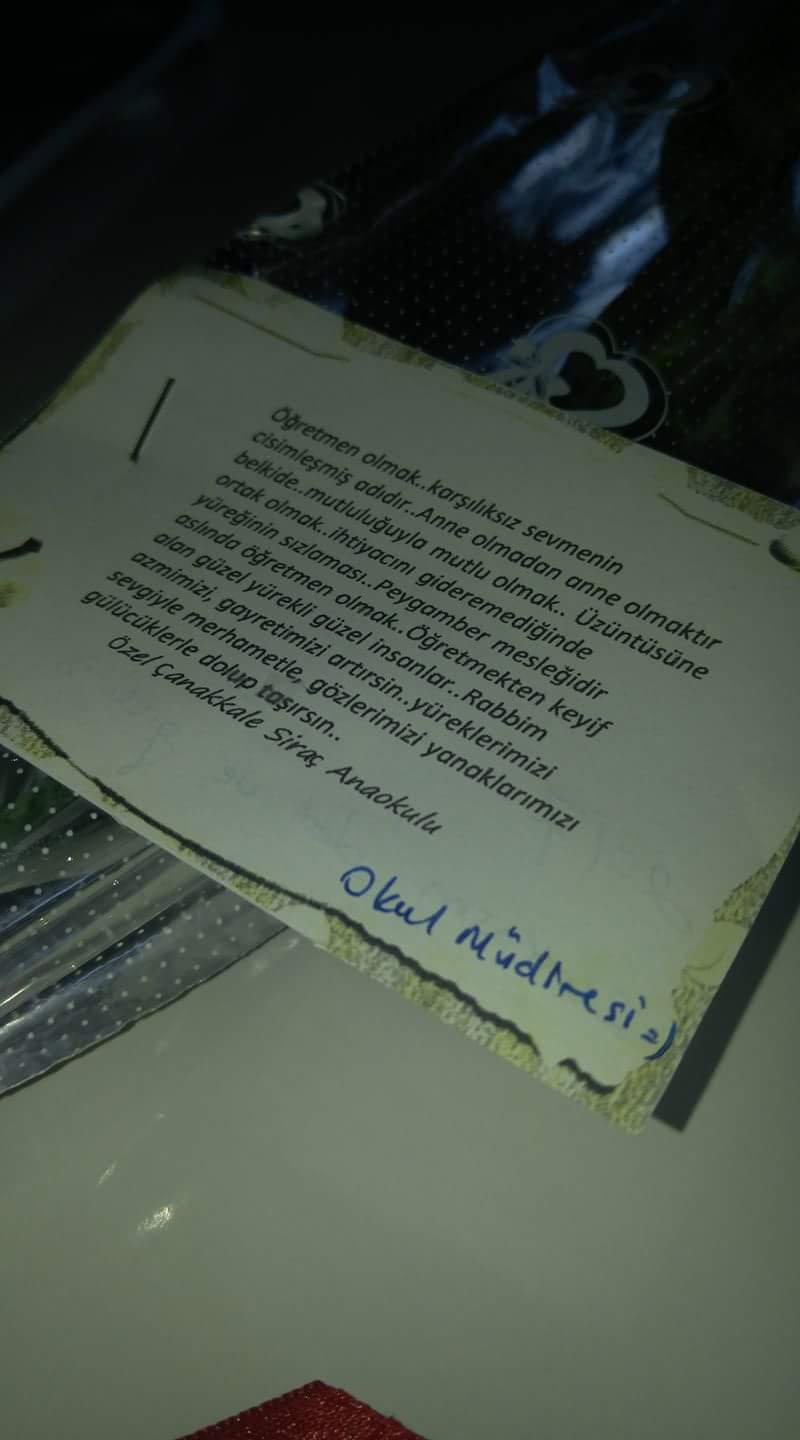 Öğretmen olmak..karşılıksız sevmenin
cisimleşmiş adıdır..Anne olmadan anne olmaktır
belkide..mutluluğuyla mutlu olmak.. Üzüntüsüne
ortak olmak..ihtiyacını gideremediğinde
yüreğinin sızlaması..Peygamber mesleğidir
aslında öğretmen olmak..Öğretmekten keyif
alan güzel yürekli güzel insanlar..Rabbim
azmimizi, gayretimizi artırsin..yüreklerimizi
sevgiyle merhametle, gözlerimizi yanaklarımızı
gülücüklerle dolup taşırsın..
Özel Çanakkale Siraç Anaokulu
Okul Müdiresi =)